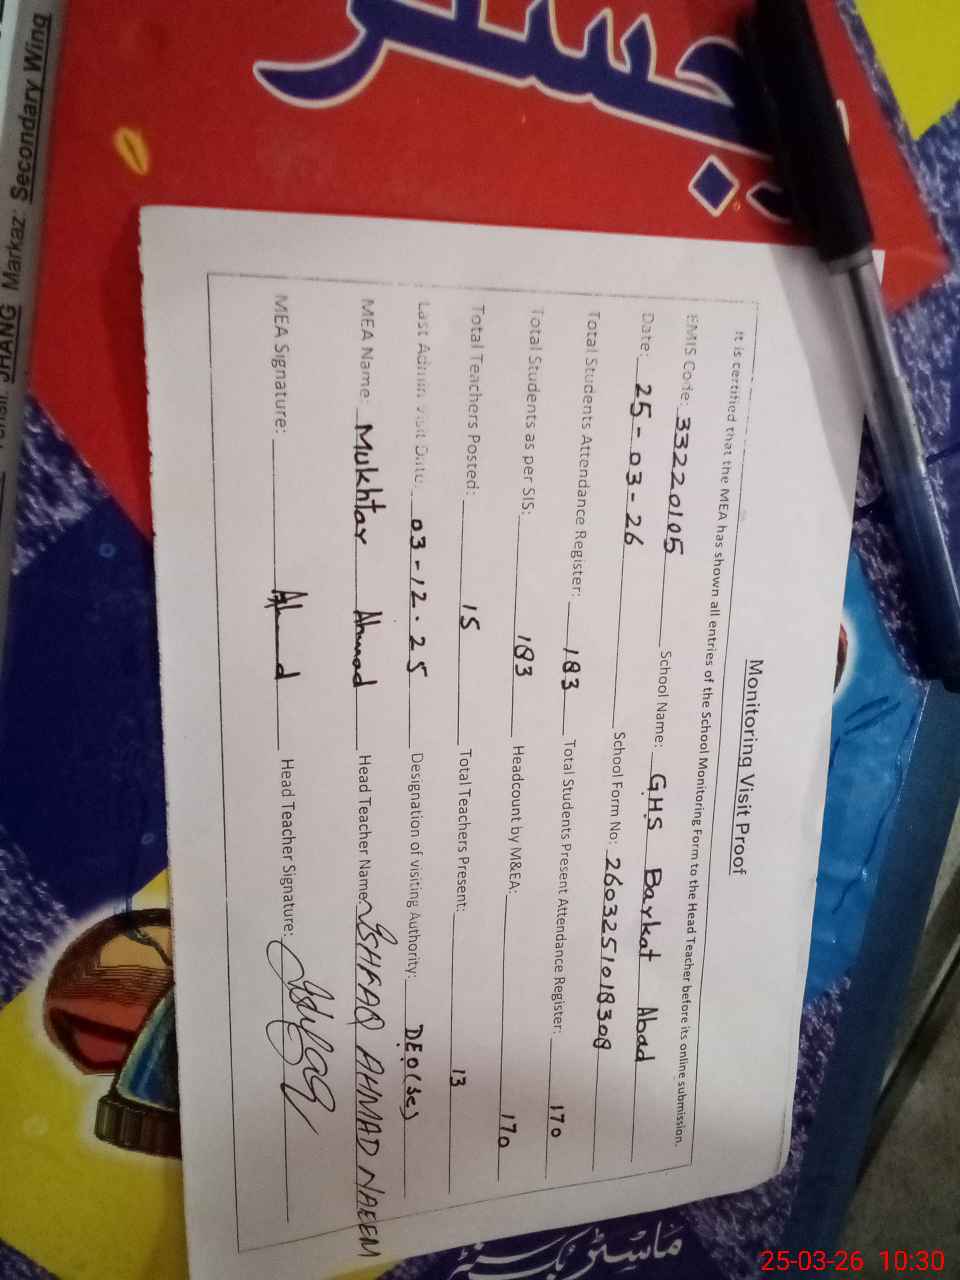 Monitoring Visit Proof
It is certified that the MEA has shown all entries of the School Monitoring Form to the Head Teacher before its online submission.
EMIS Code: 33220105 School Name: G.H.S Baykat Abad
Date: 25-03-26 School Form No: 2603251018308
Total Students Attendance Register: 183 Total Students Present Attendance Register: 170
Total Students as per SIS: 183 Headcount by M&EA: 170
Total Teachers Posted: 15 Total Teachers Present: 13
Last Admin Visit Date: 03-12.25 Designation of visiting Authority: D.E.O (SE)
MEA Name: Mukhtar Ahmad Head Teacher Name: ISHFAQ AHMAD NAEEM
MEA Signature: Head Teacher Signature: Ishfaq
Markaz: Secondary Wing
JHANG
ماسٹر
25-03-26 10:30